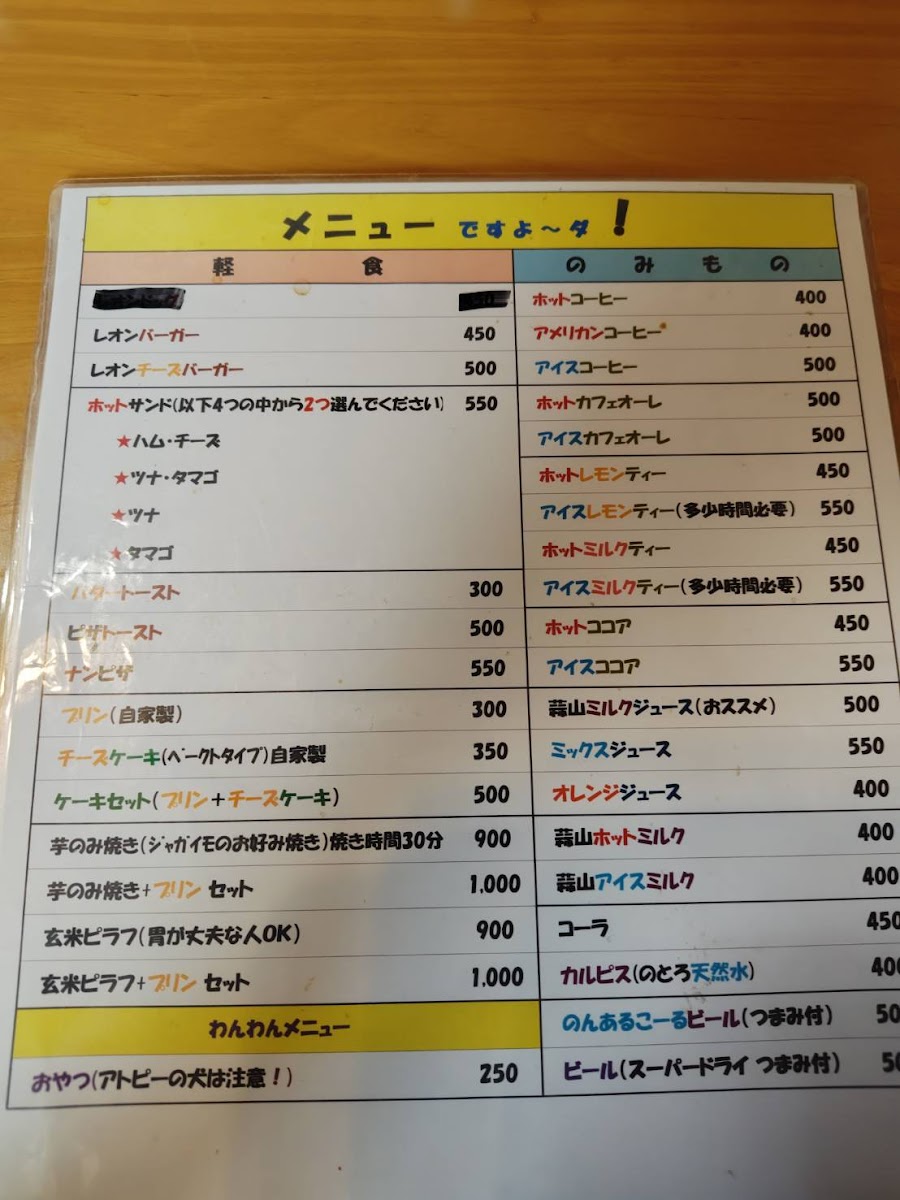 メニュー ですよ～ダ！
軽 食
レオンバーガー 450
レオンチーズバーガー 500
ホットサンド(以下4つの中から2つ選んでください) 550
★ハム・チーズ
★ツナ・タマゴ
★ツナ
★タマゴ
バタートースト 300
ピザトースト 500
ナンピザ 550
プリン(自家製) 300
チーズケーキ(ベークトタイプ)自家製 350
ケーキセット(プリン+チーズケーキ) 500
芋のみ焼き(ジャガイモのお好み焼き)焼き時間30分 900
芋のみ焼き+プリン セット 1,000
玄米ピラフ(胃が丈夫な人OK) 900
玄米ピラフ+プリン セット 1,000
わんわんメニュー
おやつ(アトピーの犬は注意！) 250
の み も の
ホットコーヒー 400
アメリカンコーヒー 400
アイスコーヒー 500
ホットカフェオーレ 500
アイスカフェオーレ 500
ホットレモンティー 450
アイスレモンティー(多少時間必要) 550
ホットミルクティー 450
アイスミルクティー(多少時間必要) 550
ホットココア 450
アイスココア 550
蒜山ミルクジュース(おススメ) 500
ミックスジュース 550
オレンジジュース 400
蒜山ホットミルク 400
蒜山アイスミルク 400
コーラ 450
カルピス(のとろ天然水) 400
のんあるこーるビール(つまみ付)
ビール(スーパードライ つまみ付)